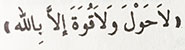 «لَاحَوْلَ وَلَاقُوَّةَ إِلاَّ بِاللهِ»